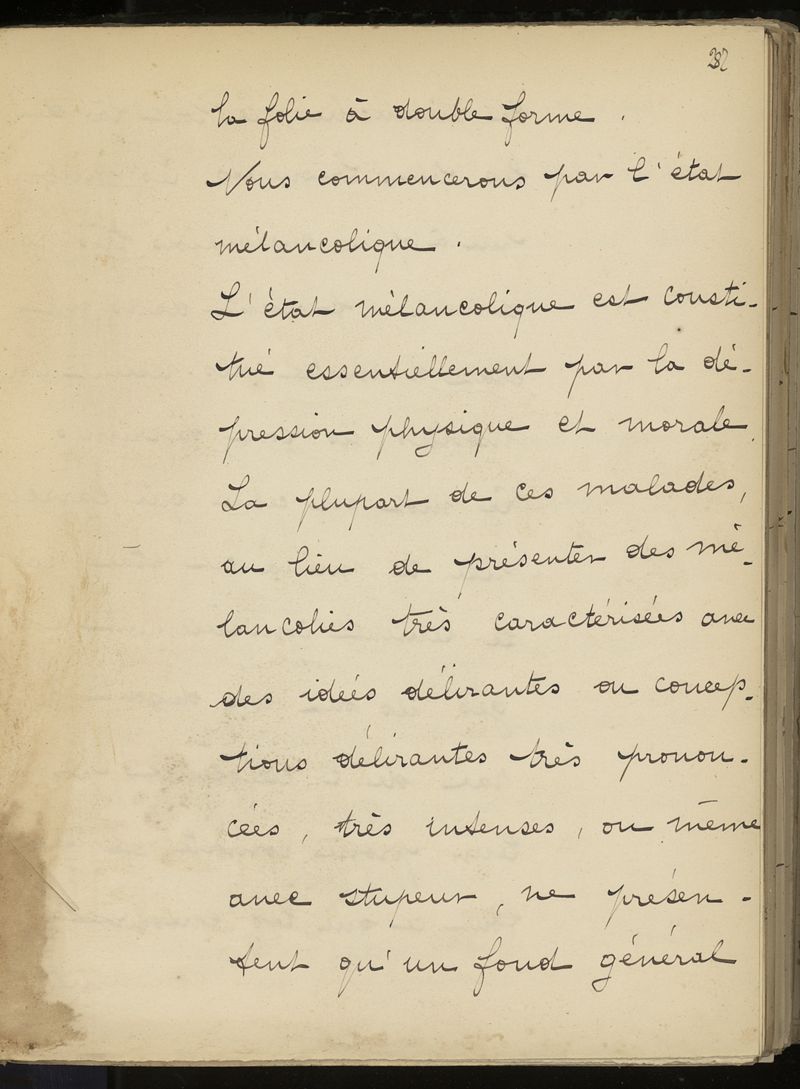 382
la folie à double forme.
Nous commencerons par l'état
mélancolique.
L'état mélancolique est consti-
tué essentiellement par la dé-
pression physique et morale.
La plupart de ces malades,
au lieu de présenter des mé-
lancolies très caractérisées avec
des idées délirantes ou concep-
tions délirantes très pronon-
cées, très intenses, ou même
avec stupeur, ne présen-
tent qu'un fond général